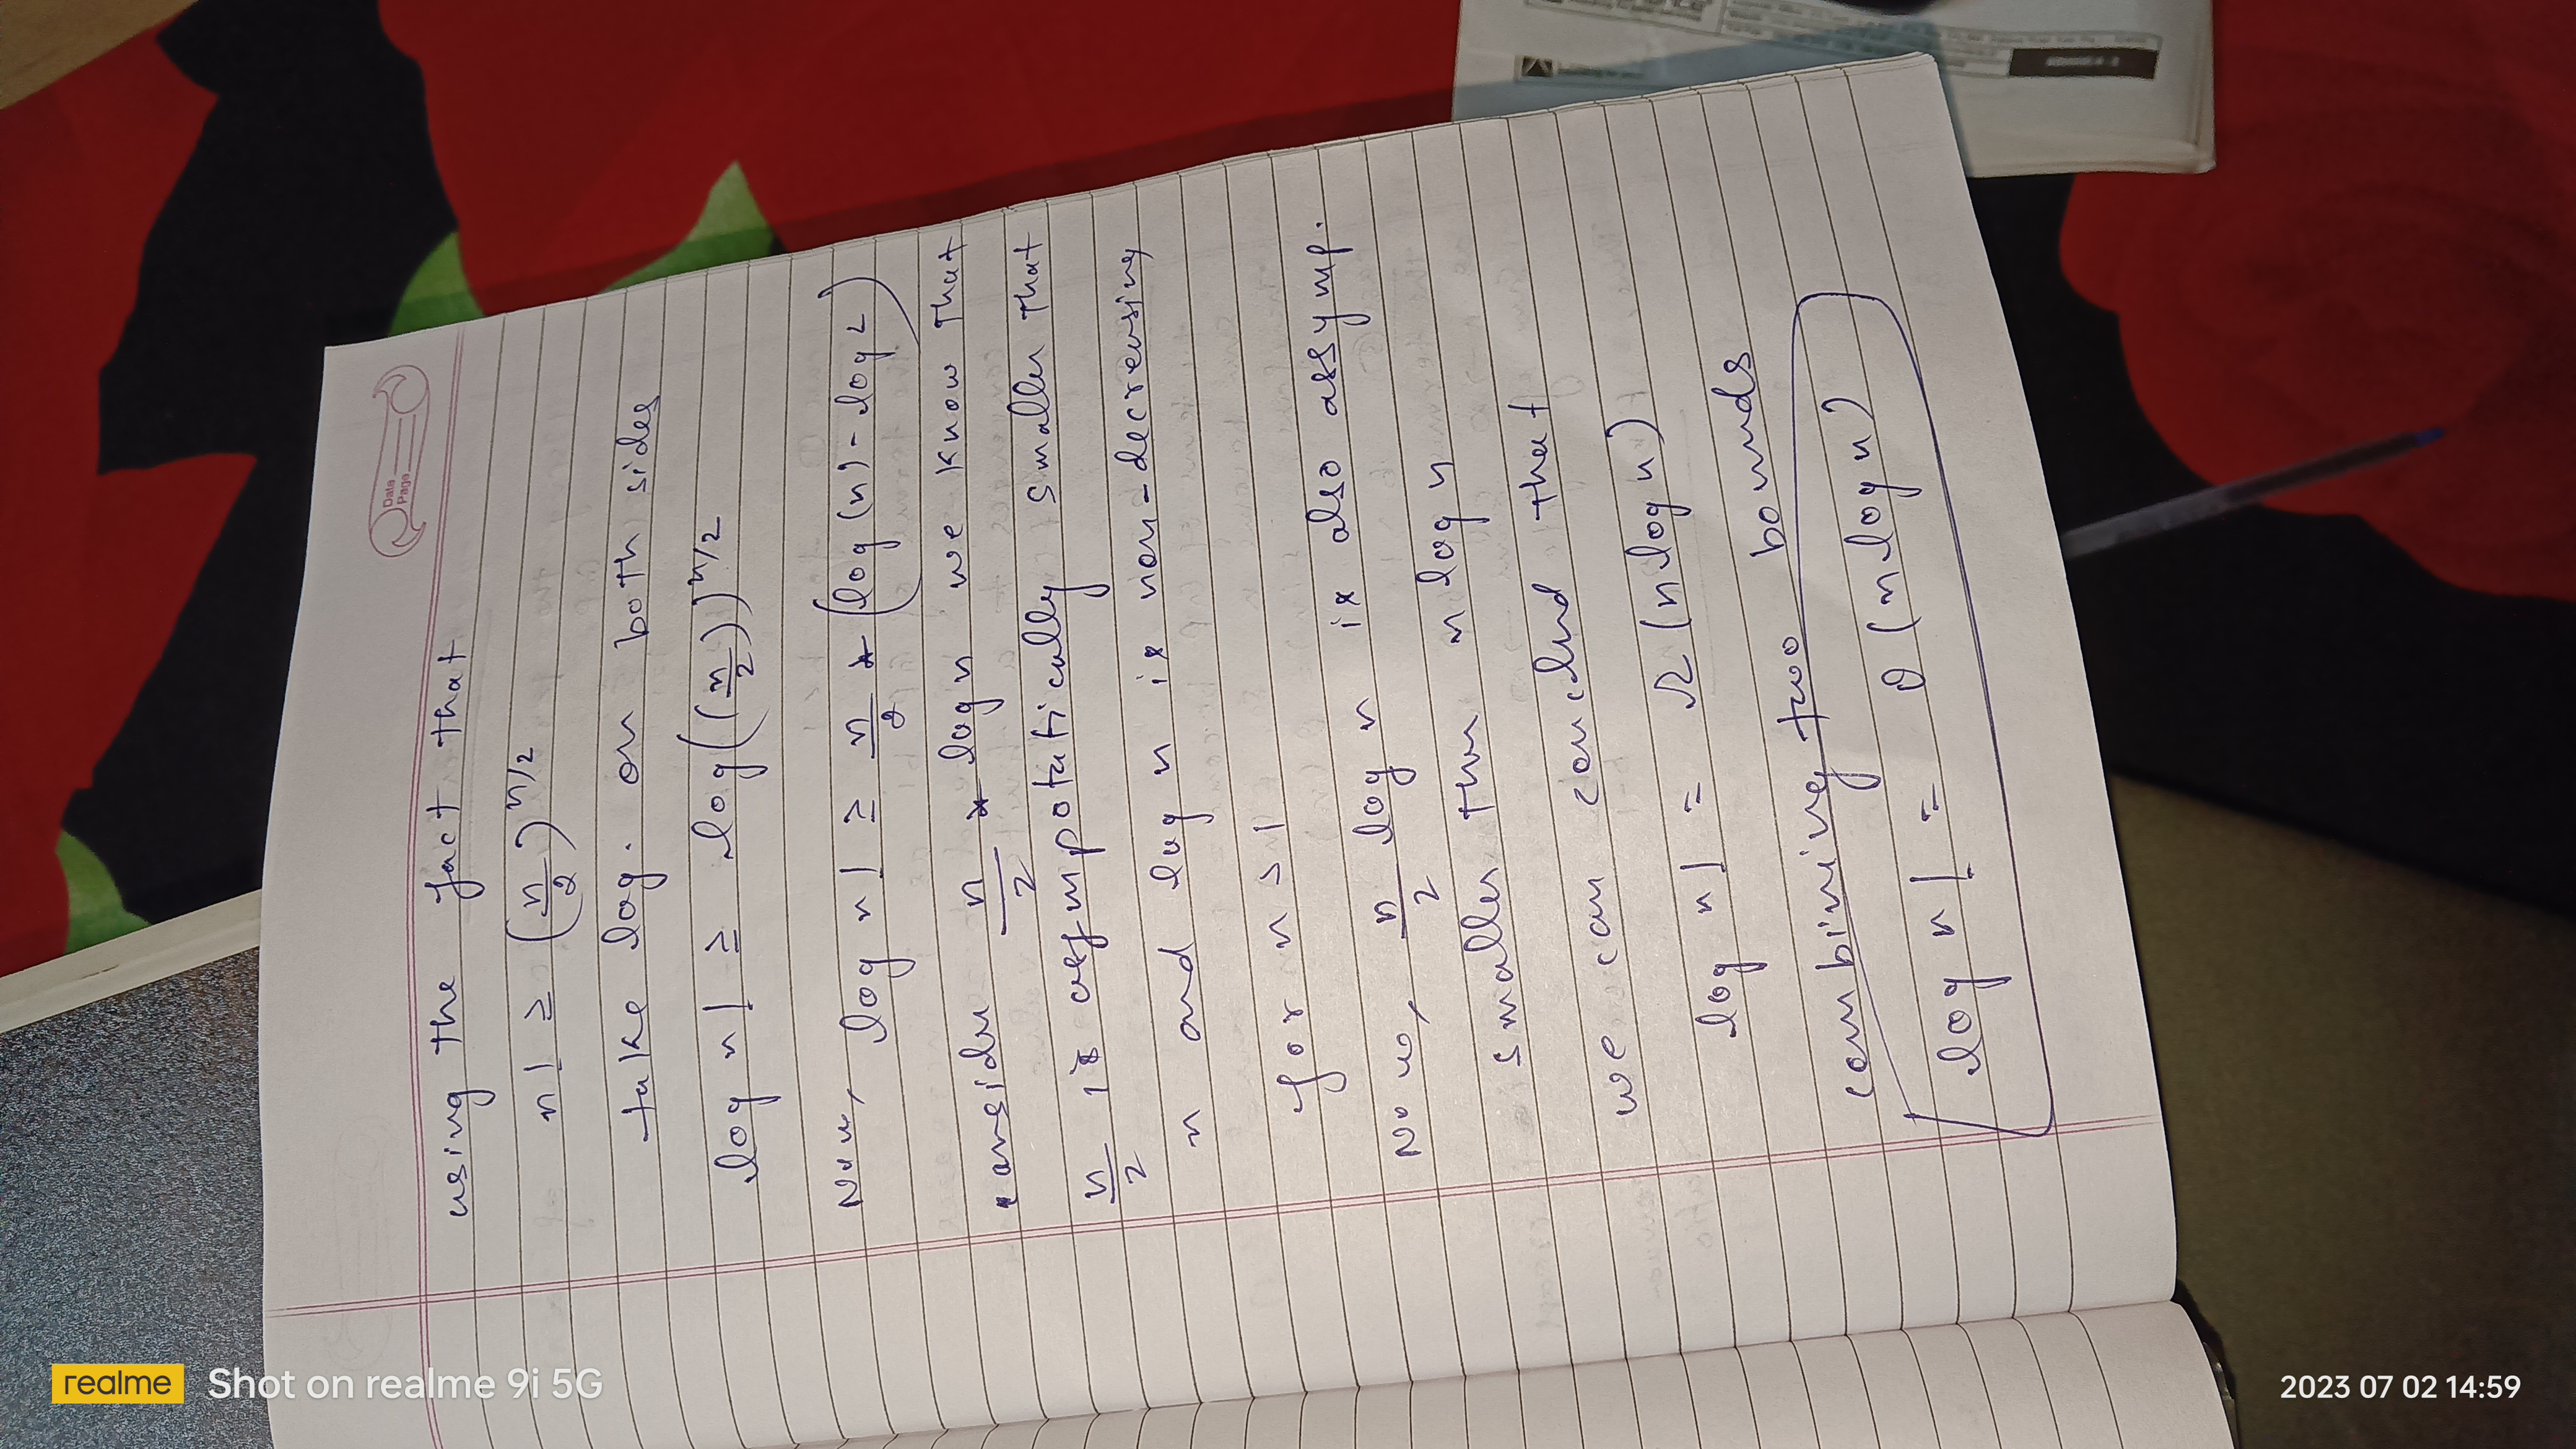 Date
Page
using the fact that
n! ≥ (n/2)^n/2
take log. on both sides
log n! ≥ log((n/2))^n/2
Now, log n! ≥ n/2 * (log(n) - log 2)
consider n/2 * log n we know that
n/2 is asympotatically smaller that
n and log n is non-decreasing
for n > 1
Now, n/2 log n is also assymp.
smaller than n log n
we can conclud that
log n! = Ω (n log n)
combining two bounds
log n! = θ (n log n)
realme Shot on realme 9i 5G
2023 07 02 14:59